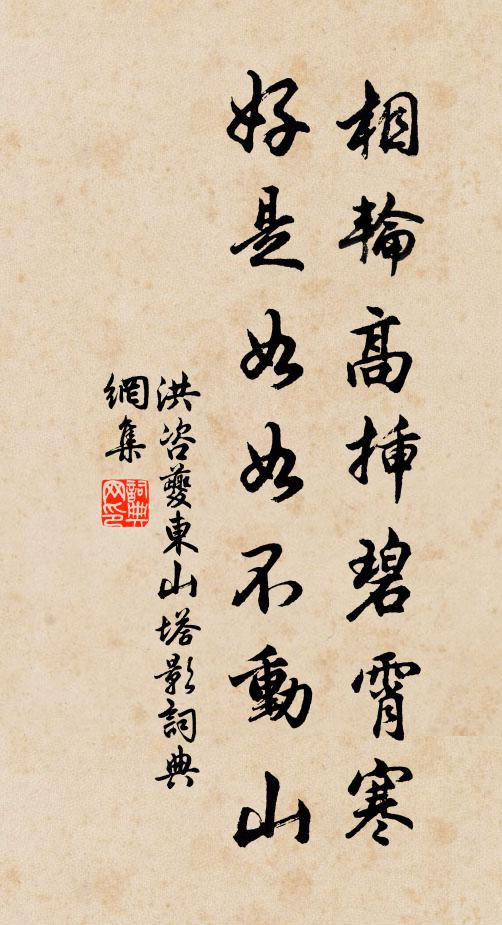 相輪高揷碧霄寒
好是如如不動山
洪咨夔東山塔影詞典
網集
詞典
网印